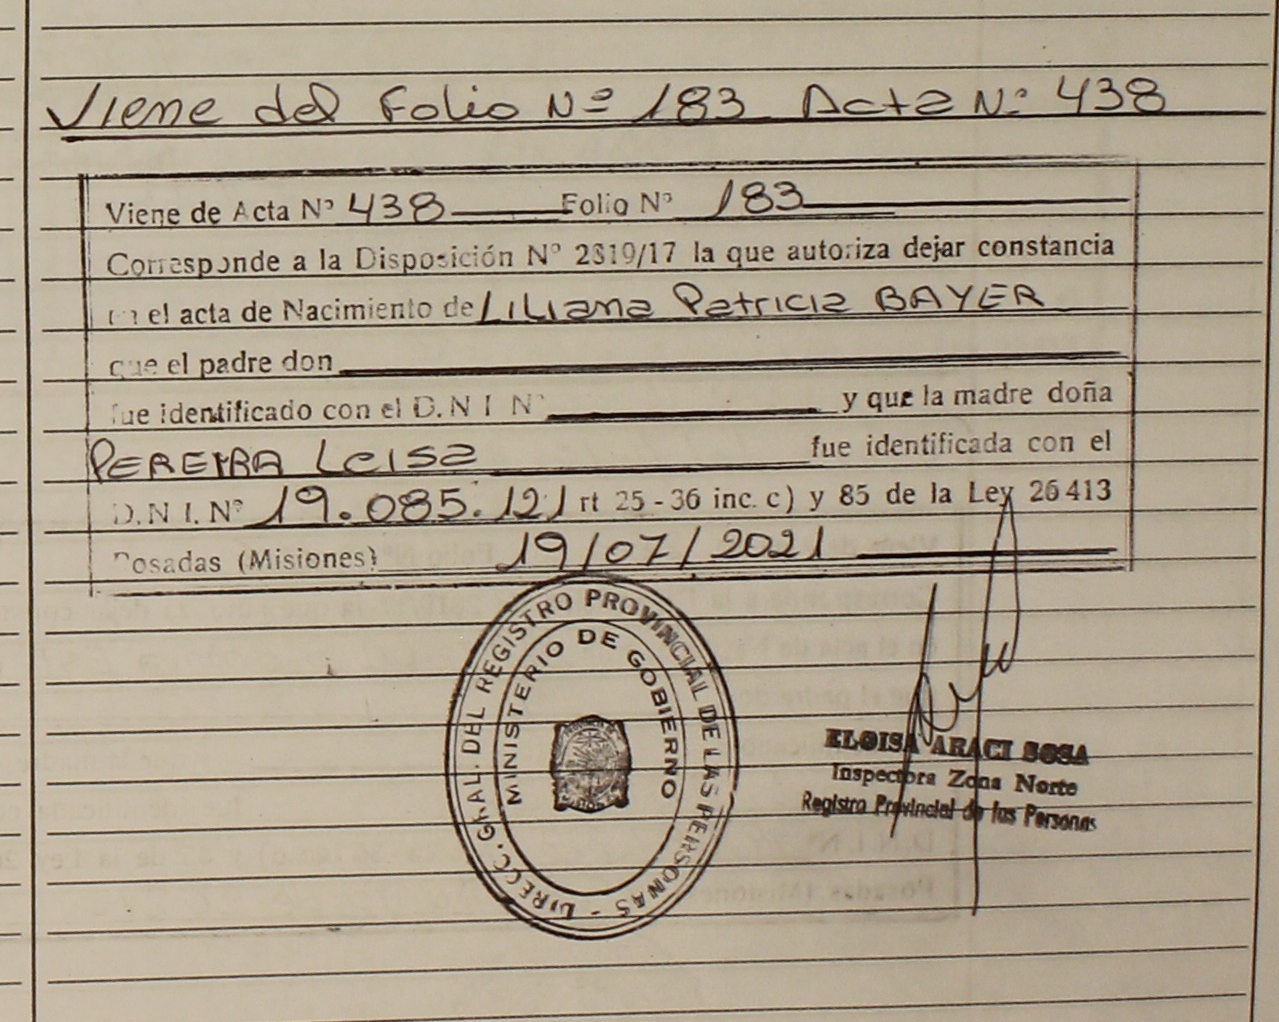 Viene del Folio Nº 183 Acta Nº 438
Viene de Acta Nº 438 Folio Nº 183
Corresponde a la Disposición Nº 2819/17 la que autoriza dejar constancia
en el acta de Nacimiento de Liliana Patricia BAYER
que el padre don
fue identificado con el D.N I Nº y que la madre doña
PEREIRA Leisa fue identificada con el
D.N I. Nº 19.085.121 rt 25 - 36 inc. c) y 85 de la Ley 26413
Posadas (Misiones) 19/07/2021
DIRECC. GRAL. DEL REGISTRO PROVINCIAL DE LAS PERSONAS -
MINISTERIO DE GOBIERNO
ELOISA ARACI SOSA
Inspectora Zona Norte
Registro Provincial de las Personas